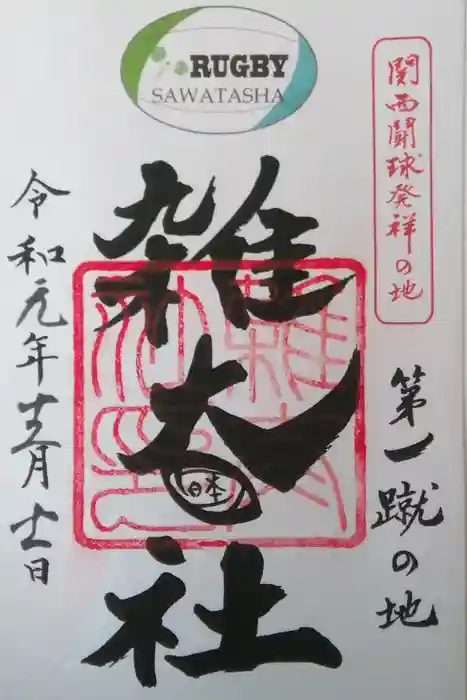 RUGBY
SAWATASHA
関西闘球発祥の地
第一蹴の地
雑太社
日本
令和元年十二月十二日